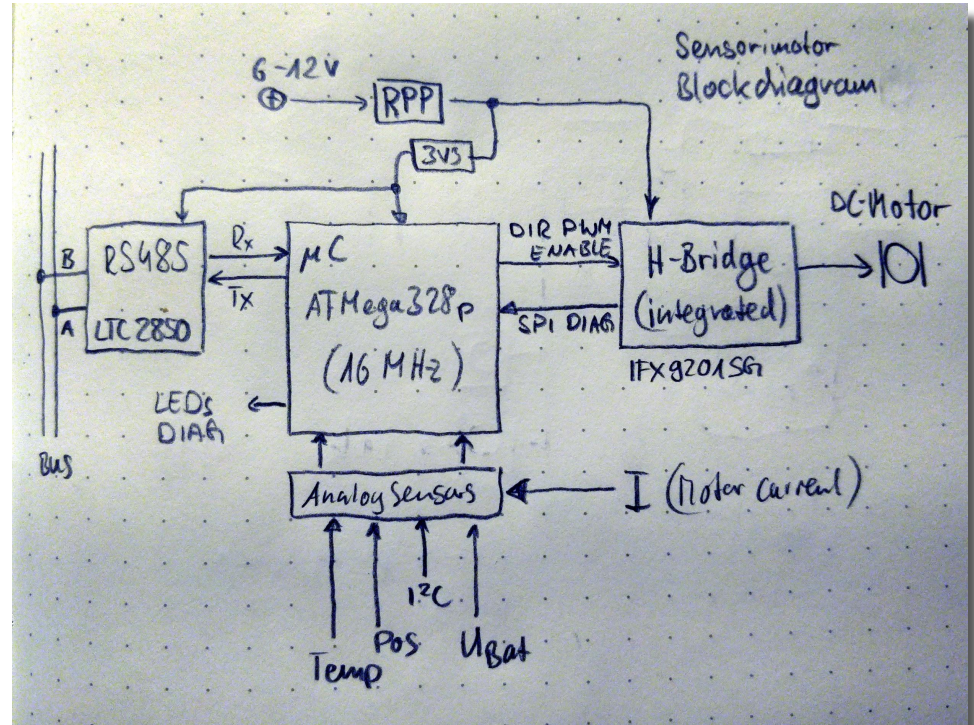 Sensorimotor
Blockdiagram
6-12V
RPP
3V3
DC-Motor
RS485
LTC2850
B
A
Bus
Rx
Tx
µC
ATMega328p
(16 MHz)
DIR PWM
ENABLE
SPI DIAG
H-Bridge
(integrated)
IFX9201SG
LEDs
DIAG
Analog Sensors
I (Motor Current)
Temp
Pos
I²C
UBat